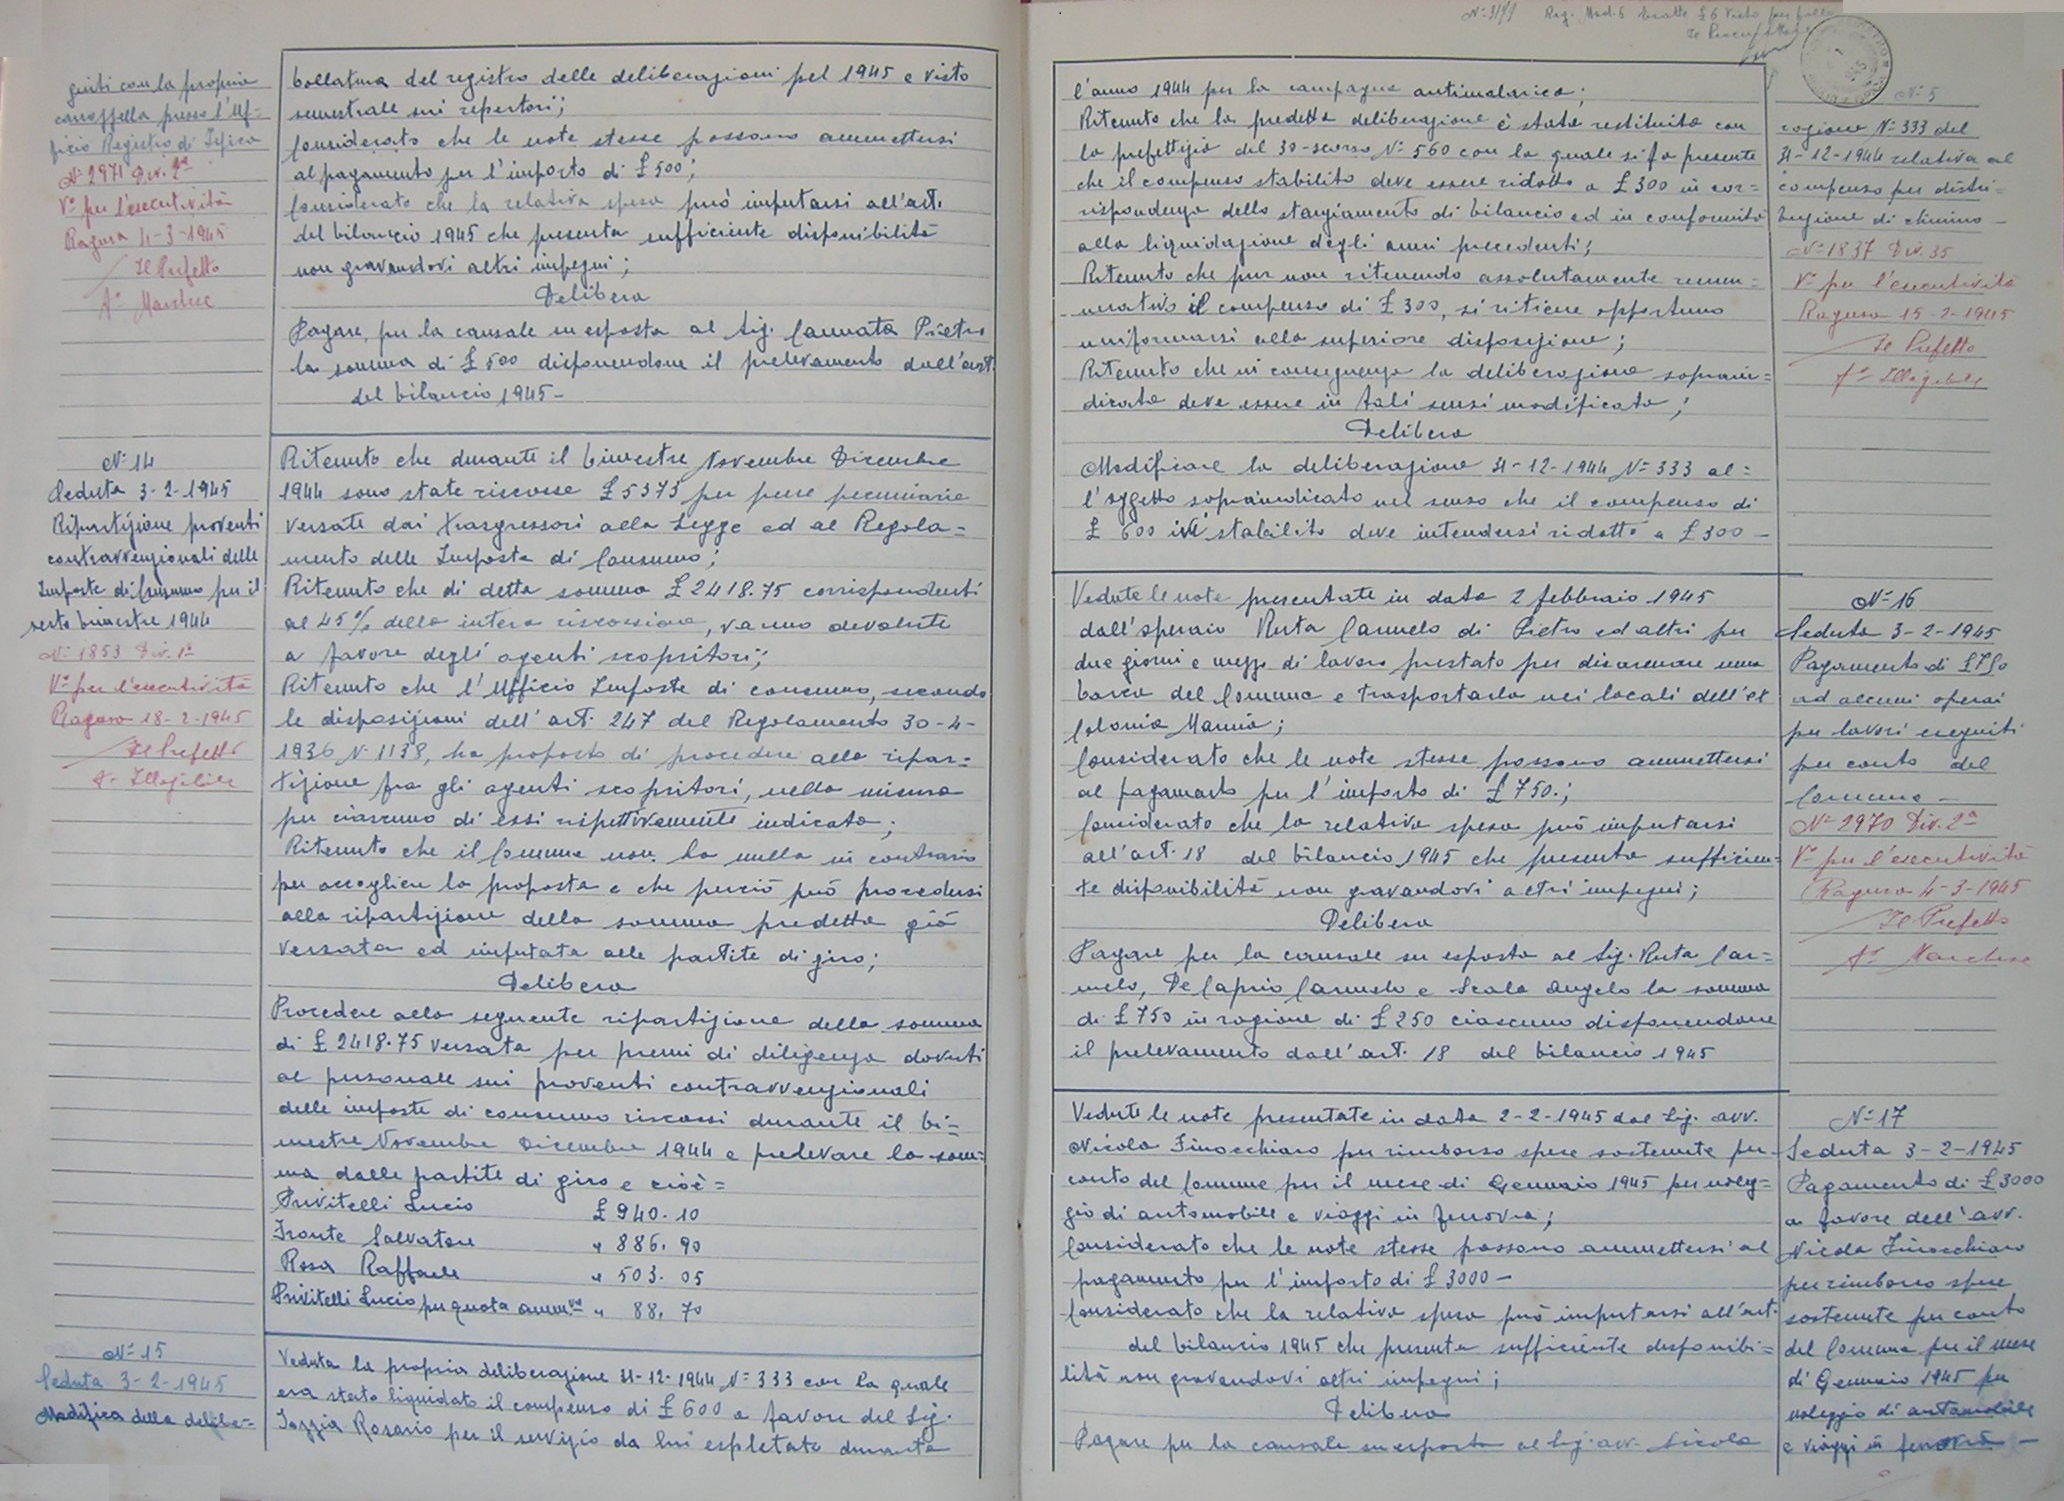 giuti con la propria
carozzella presso l'Uf-
ficio Registro di
N° 2971 Div. 2ª
V° per l'esecutività
Ragusa 4-3-1945
Il Prefetto
F° Marchese
bollatura del registro delle deliberazioni pel 1945 e visto
semestrale sui repertori;
Considerato che le note stesse possono ammettersi
al pagamento per l'importo di £ 500;
Considerato che la relativa spesa può imputarsi all'art.
del bilancio 1945 che presenta sufficiente disponibilità
non gravandovi altri impegni;
Delibera
Pagare, per la causale su esposta al Sig. Cannata Pietro
la somma di £ 500 disponendone il prelevamento dall'art.
del bilancio 1945-
N° 14
Seduta 3-2-1945
Ripartizione proventi
contravvenzionali delle
Imposte di Consumo per il
sesto bimestre 1944
N° 1853 Div. 1ª
V° per l'esecutività
Ragusa 18-2-1945
Il Prefetto
F° Illegibile
Ritenuto che durante il bimestre Novembre Dicembre
1944 sono state riscosse £ 5375 per pene pecuniarie
versate dai trasgressori alla Legge ed al Regola=
mento delle Imposte di Consumo;
Ritenuto che di detta somma £ 2418.75 corrispondenti
al 45% della intera riscossione, vanno devolute
a favore degli agenti scopritori;
Ritenuto che l'Ufficio Imposte di consumo, secondo
le disposizioni dell'art. 247 del Regolamento 30-4-
1936 N. 1138, ha proposto di procedere alla ripar=
tizione fra gli agenti scopritori, nella misura
per ciascuno di essi rispettivamente indicata;
Ritenuto che il Comune non ha nulla in contrario
per accogliere la proposta e che perciò può procedersi
alla ripartizione della somma predetta già
versata ed imputata alle partite di giro;
Delibera
Procedere alla seguente ripartizione della somma
di £ 2418.75 versata per premi di diligenza dovuti
al personale sui proventi contravvenzionali
delle imposte di consumo riscossi durante il bi=
mestre Novembre Dicembre 1944 e prelevare la som=
ma dalle partite di giro e cioè=
Privitelli Lucio £ 940.10
Fronte Salvatore " 886.90
Rosa Raffaele " 503.05
Privitelli Lucio per quota amm.va " 88.70
N° 15
Seduta 3-2-1945
Modifica della delibe=
Veduta la propria deliberazione 31-12-1944 N° 333 con la quale
era stato liquidato il compenso di £ 600 a favore del Sig.
Iozzia Rosario per il servizio da lui espletato durante
Reg. Mod. 6 £ 6 Visto per
N° 5
l'anno 1944 per la campagna antimalarica;
Ritenuto che la predetta deliberazione è stata restituita con
la prefettizia del 30-scorso N° 560 con la quale si fa presente
che il compenso stabilito deve essere ridotto a £ 300 in cor=
rispondenza dello stanziamento di bilancio ed in conformità
alla liquidazione degli anni precedenti;
Ritenuto che pur non ritenendo assolutamente remu=
nerativo il compenso di £ 300, si ritiene opportuno
uniformarsi alla superiore disposizione;
Ritenuto che in conseguenza la deliberazione soprain=
dicata deve essere in tali sensi modificata;
Delibera
Modificare la deliberazione 31-12-1944 N° 333 al=
l'oggetto sopraindicato nel senso che il compenso di
£ 600 ivi stabilito deve intendersi ridotto a £ 300-
razione N° 333 del
31-12-1944 relativa al
compenso per distri-
buzione di chinino-
N° 1837 Div. 35
V° per l'esecutività
Ragusa 15-2-1945
Il Prefetto
F° Illegibile
Vedute le note presentate in data 2 febbraio 1945
dall'operaio Ruta Carmelo di Pietro ed altri per
due giorni e mezzo di lavoro prestato per disarenare una
barca del Comune e trasportarla nei locali dell'ex
Colonia Marina;
Considerato che le note stesse possono ammettersi
al pagamento per l'importo di £ 750.;
Considerato che la relativa spesa può imputarsi
all'art. 18 del bilancio 1945 che presenta sufficien=
te disponibilità non gravandovi altri impegni;
Delibera
Pagare per la causale su esposta al Sig. Ruta Car=
melo, De Caprio Carmelo e Scala Angelo la somma
di £ 750 in ragione di £ 250 ciascuno disponendone
il prelevamento dall'art. 18 del bilancio 1945
N° 16
Seduta 3-2-1945
Pagamento di £ 750
ad alcuni operai
per lavori eseguiti
per conto del
Comune-
N° 2970 Div. 2ª
V° per l'esecutività
Ragusa 4-3-1945
Il Prefetto
F° Marchese
Vedute le note presentate in data 2-2-1945 dal Sig. avv.
Nicola Finocchiaro per rimborso spese sostenute per
conto del Comune per il mese di Gennaio 1945 per noleg=
gio di automobile e viaggi in ferrovia;
Considerato che le note stesse possono ammettersi al
pagamento per l'importo di £ 3000-
Considerato che la relativa spesa può imputarsi all'art.
del bilancio 1945 che presenta sufficiente disponibi=
lità non gravandovi altri impegni;
Delibera
Pagare per la causale su esposta al Sig. avv. Nicola
N° 17
Seduta 3-2-1945
Pagamento di £ 3000
a favore dell'avv.
Nicola Finocchiaro
per rimborso spese
sostenute per conto
del Comune per il mese
di Gennaio 1945 per
noleggio di automobile
e viaggi in ferrovia-